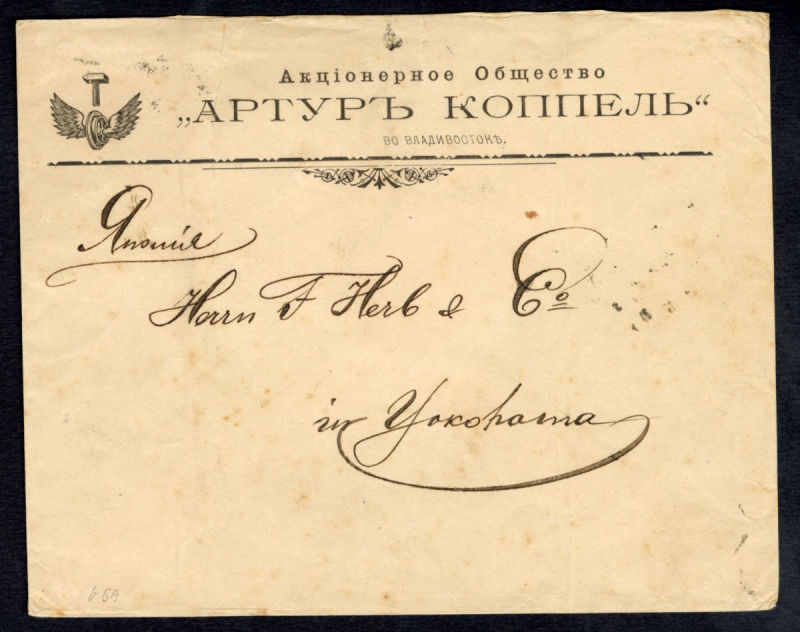 Акціонерное Общество
„АРТУРЪ КОППЕЛЬ“
ВО ВЛАДИВОСТОКѢ.
Японія
Herrn F Herb & Co
in Yokohama